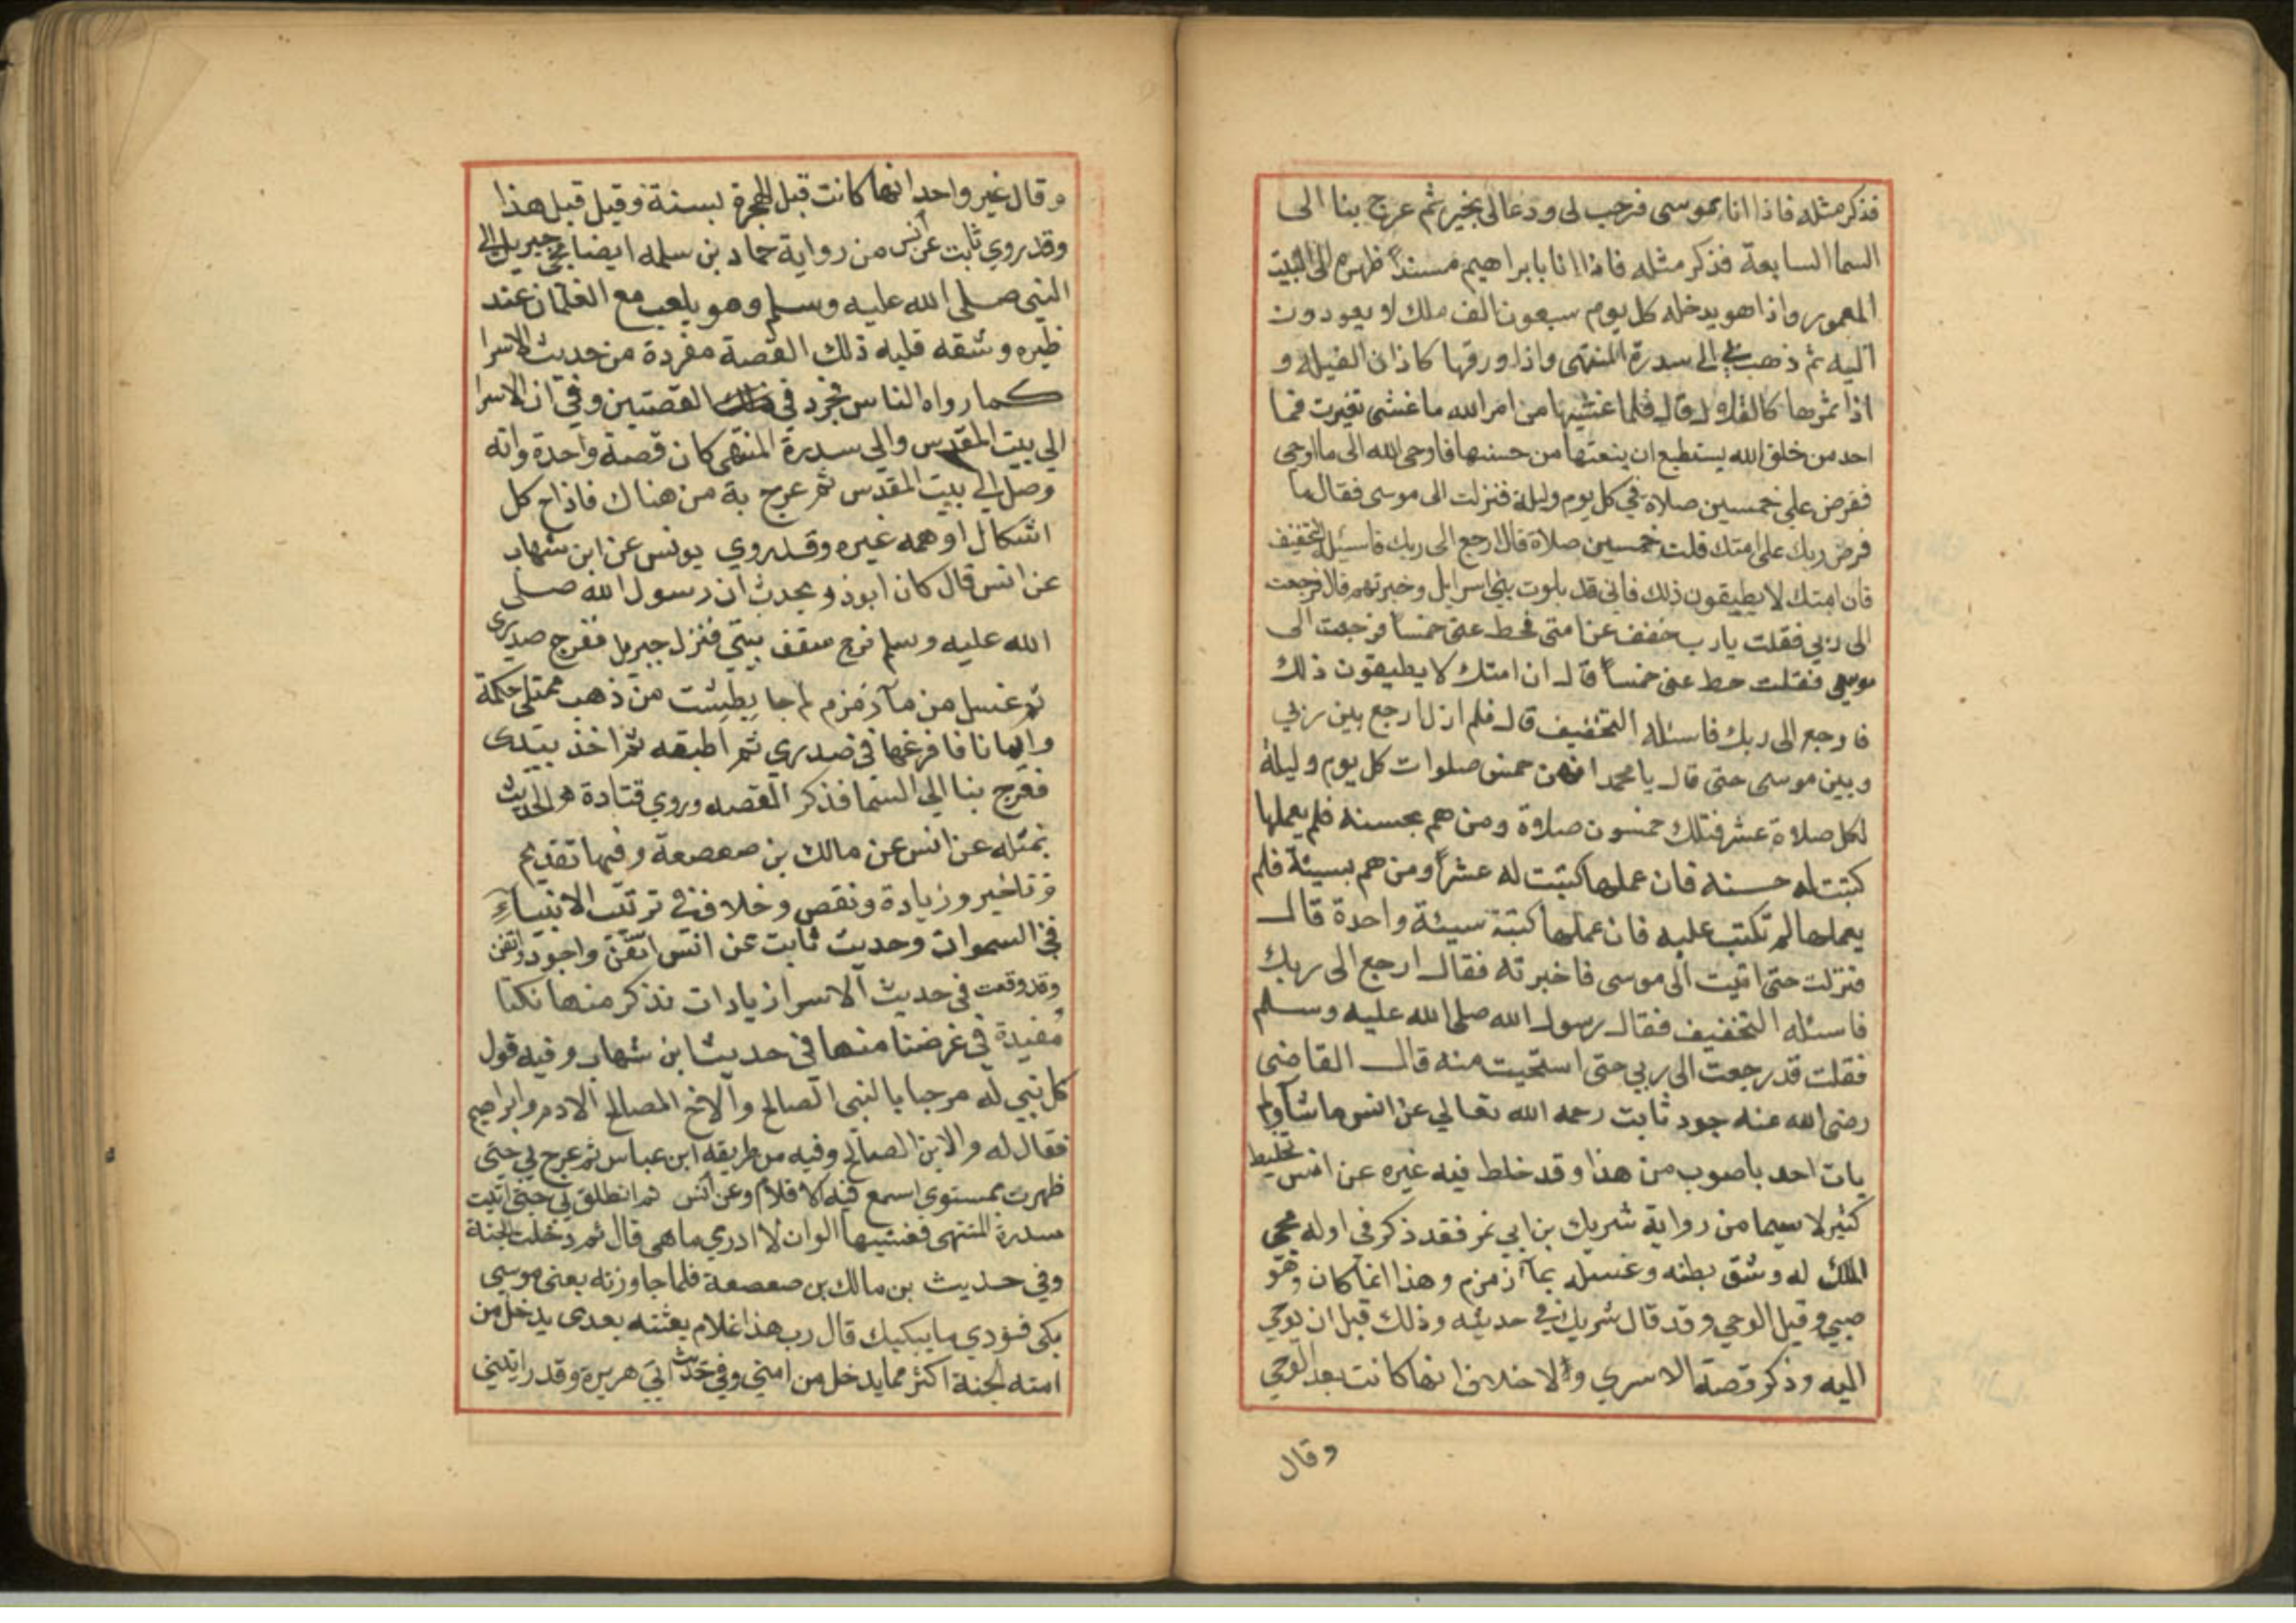 فذكر مثله فاذا انا بموسى فرحب لى ودعا لى بخير ثم عرج بنا الى
السما السابعة فذكر مثله فاذا انا بابراهيم مسنداً ظهره الى البيت
المعمور واذا هو يدخله كل يوم سبعون الف ملك لا يعودون
اليه ثم ذهب بي الى سدرة المنتهى واذا ورقها كاذان الفيله و
اذا ثمرها كالقلال قال فلما غشيها من امر الله ما غشى تغيرت فما
احد من خلق الله يستطيع ان ينعتها من حسنها فاوحى الله الى ما اوحى
ففرض علي خمسين صلاة في كل يوم وليلة فنزلت الى موسى فقال ما
فرض ربك على امتك قلت خمسين صلاة قال ارجع الى ربك فاسئله التخفيف
فان امتك لا يطيقون ذلك فاني قد بلوت بني اسرايل وخبرتهم قال فرجعت
الى ربي فقلت يا رب خفف عن امتي فحط عني خمساً فرجعت الى
موسى فقلت حط عني خمساً قال ان امتك لا يطيقون ذلك
فارجع الى ربك فاسئله التخفيف قال فلم ازل ارجع بين ربي
وبين موسى حتى قال يا محمد انهن خمس صلوات كل يوم وليلة
لكل صلاة عشر فتلك خمسون صلاة ومن هم بحسنه فلم يعملها
كتبت له حسنه فان عملها كتبت له عشراً ومن هم بسيئة فلم
يعملها لم تكتب عليه فان عملها كتبة سيئة واحدة قال
فنزلت حتى اتيت الى موسى فاخبرته فقال ارجع الى ربك
فاسئله التخفيف فقال رسول الله صلى الله عليه وسلم
فقلت قد رجعت الى ربي حتى استحيت منه قال القاضى
رضى الله عنه جود ثابت رحمه الله تعالي عن انس ما شآ ولم
يات احد باصوب من هذا وقد خلط فيه غيره عن انس تخليط
كثير لا سيما من رواية شريك بن ابي نمر فقد ذكر فى اوله مجى
الملك له وشق بطنه وغسله بمآ زمزم وهذا انما كان وهو
صبي وقبل الوحي وقد قال شريك في حديثه وذلك قبل ان يوحي
اليه وذكر قصة الاسري ولا خلاف انها كانت بعد الوحي
وقال
وقال غير واحد انها كانت قبل الهجرة بسنة وقيل قبل هذا
وقد روي ثابت عن أنس من رواية حماد بن سلمه ايضا مجى جبريل الى
النبي صلى الله عليه وسلم وهو يلعب مع الغلمان عند
ظيره وشقه قلبه ذلك القصة مفردة من حديث الاسرا
كما رواه الناس فجرد في القصتين وفي ان الاسرا
الي بيت المقدس والي سدرة المنتهى كان قصة واحدة وانه
وصل الي بيت المقدس ثم عرج به من هناك فاذاح كل
اشكال اوهمه غيره وقد روي يونس عن ابن شهاب
عن انس قال كان ابوذر يحدث ان رسول الله صلى
الله عليه وسلم فرج سقف بيتي فنزل جبريل ففرج صدري
ثم غسل من مآ زمزم ثم جا بطشت من ذهب ممتلي حكمة
وايمانا فافرغها في صدري ثم اطبقه ثم اخذ بيدى
فعرج بنا الي السما فذكر القصه وروي قتادة هو الحديث
بمثله عن انس عن مالك بن صعصعة وفيها تقديم
وتاخير وزيادة ونقص وخلاف في ترتيب الانبيآء
في السموات وحديث ثابت عن انس اتقن واجود
وقد وقعت في حديث الاسرا زيادات نذكر منها نكتا
مفيدة في غرضنا منها في حديث ابن شهاب وفيه قول
كل نبي له مرحبا بالنبى الصالح والاخ الصالح الا ادم وابراهيم
فقال له والابن الصالح وفيه من طريقة ابن عباس ثم عرج بي حتى
ظهرت بمستوي اسمع فيه الاقلام وعن أنس ثم انطلق بي حتى اتيت
سدرة المنتهى فغشيها الوان لا ادري ما هى قال ثم دخلت الجنة
وفي حديث بن مالك بن صعصعة فلما جاوزته يعنى موسي
بكى فنودي ما يبكيك قال رب هذا غلام بعثته بعدى يدخل من
امته الجنة اكثر مما يدخل من امتي وفي حديث ابي هريرة وقد رايتني